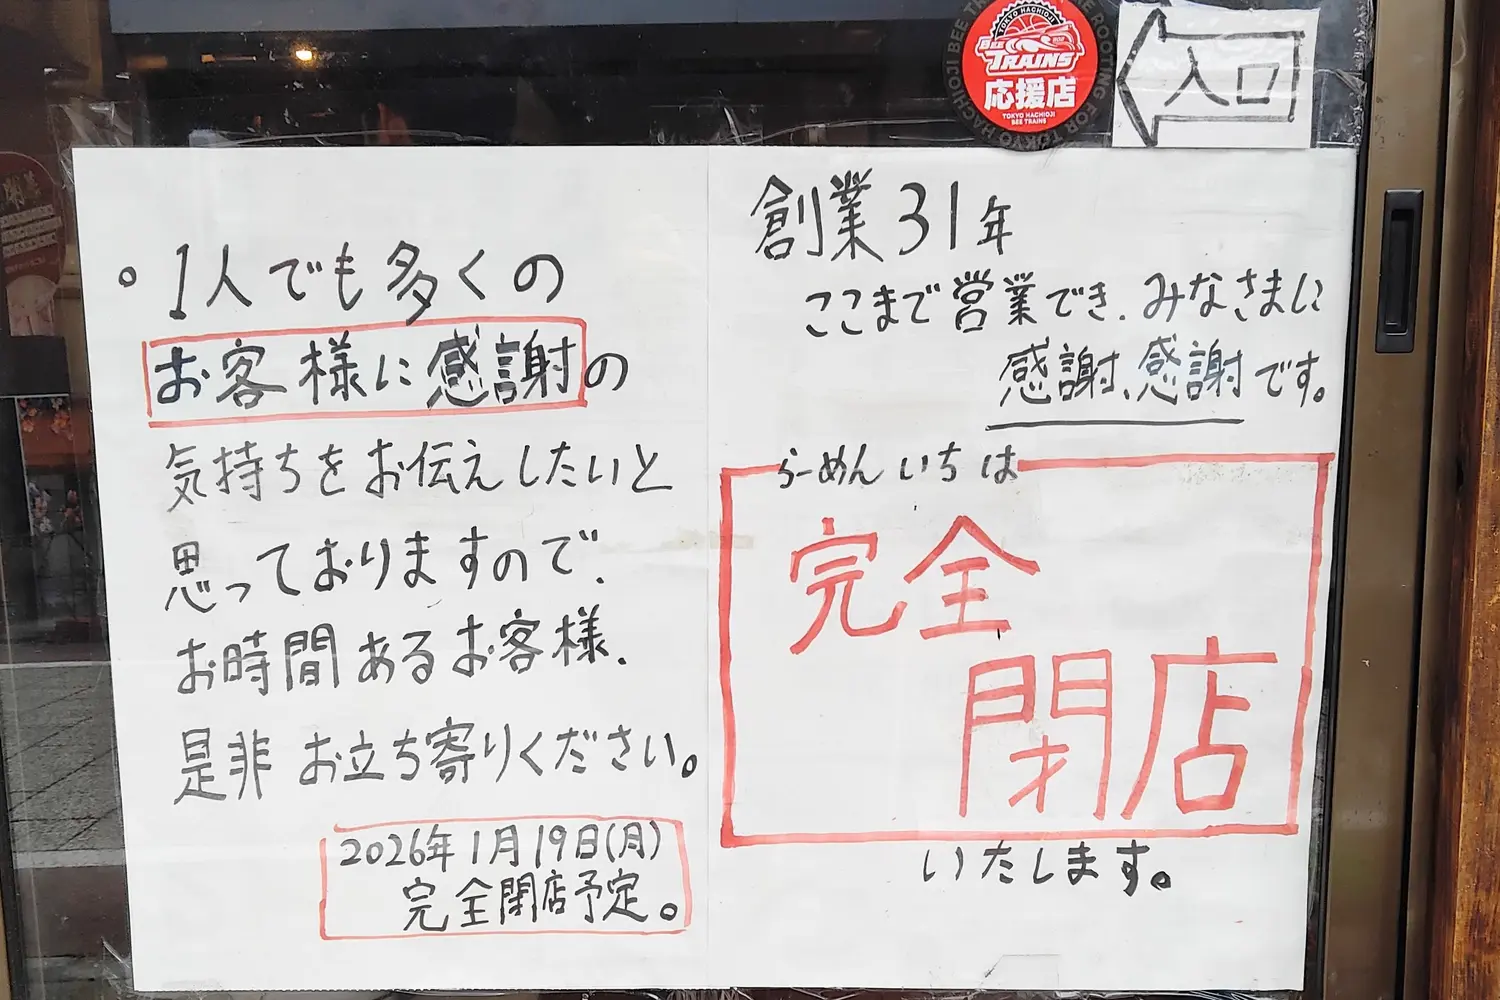 TOKYO HACHIOJI
BEE
TRAINS
応援店
TOKYO HACHIOJI
BEE TRAINS
入口
創業31年
ここまで営業でき、みなさまに
感謝、感謝です。
らーめんいちは
完全
閉店
いたします。
。1人でも多くの
お客様に感謝の
気持ちをお伝えしたいと
思っておりますので、
お時間あるお客様、
是非お立ち寄りください。
2026年1月19日(月)
完全閉店予定。